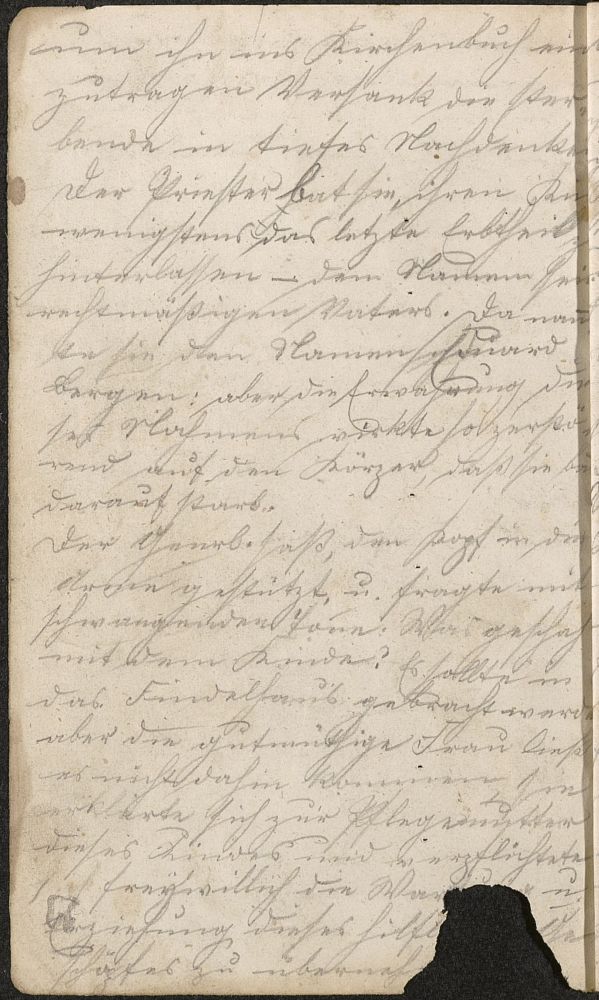 um ihn ins Kirchenbuch ein
zutragen Versank die ster
bende in tiefes Nachdenken
Der Priester bat sie, ihrem
wenigstens das letzte Erbtheil zu
hinterlassen – den Namen sei
rechtmäßigen Vaters. Da nann
te sie den Namen Eduard
Bergen: aber die Erwähnung die
ses Nahmens wirkte so zerstö
rend auf den Körper, daß sie ba
darauf starb.
Der saß, den Kopf in die
Arme gestützt, u. fragte mit
Tone: Was geschah
mit dem Kinde? Es sollte in
das Findelhaus gebracht werde
aber die gutmüthige Frau ließ
es nicht dahin kommen, sie
erklärte sich zur Pflegemutter
dieses Kindes und verpflichtete
freywillich die u.
Erziehung dieses hilfl
schöpfes zu überneh